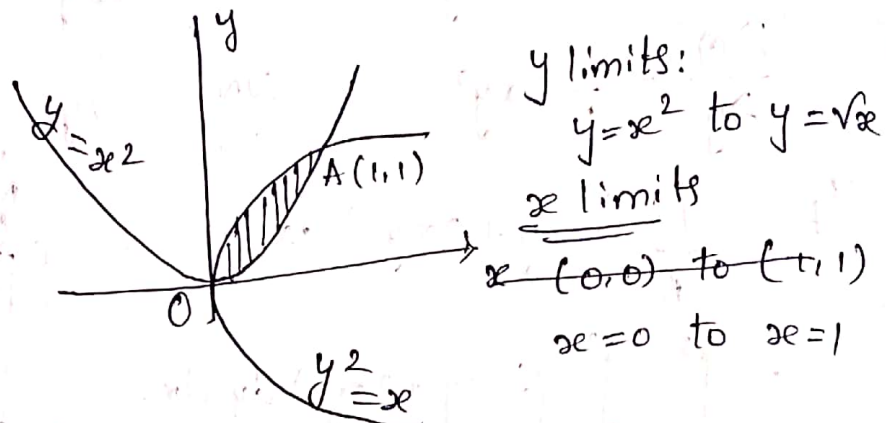 y
y = x2
A (1,1)
O
y2 = x
x
y limits:
y = x² to y = √x
x limits
(0,0) to (1,1)
x = 0 to x = 1